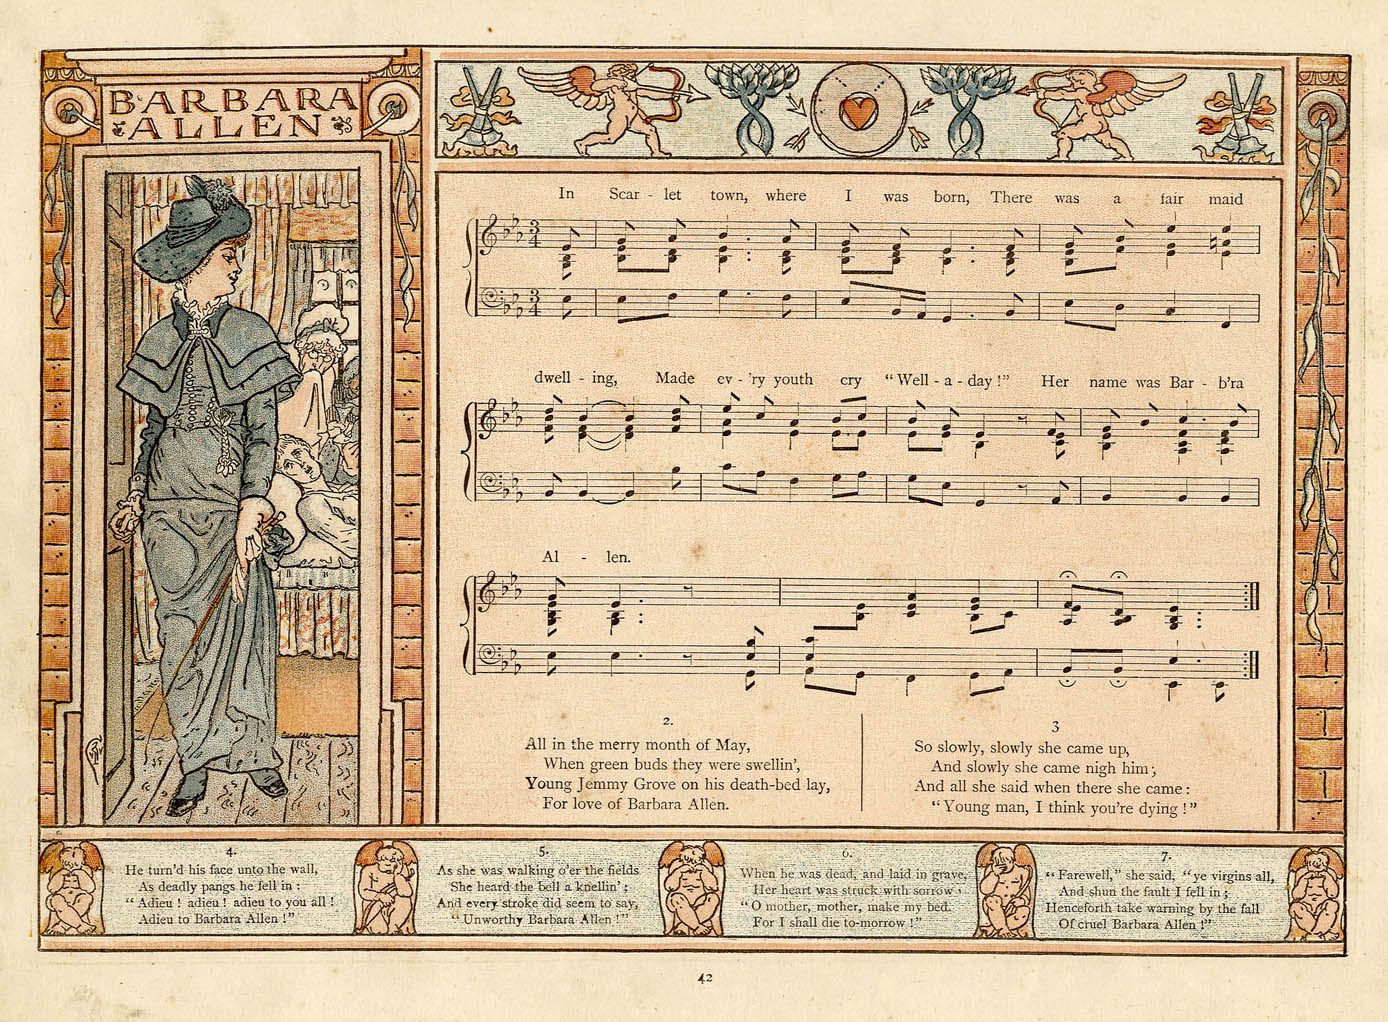 BARBARA
ALLEN
In Scar - let town, where I was born, There was a fair maid
dwell - ing, Made ev - 'ry youth cry "Well - a - day!" Her name was Bar - b'ra
Al - len.
2.
All in the merry month of May,
When green buds they were swellin',
Young Jemmy Grove on his death-bed lay,
For love of Barbara Allen.
3
So slowly, slowly she came up,
And slowly she came nigh him;
And all she said when there she came:
"Young man, I think you're dying!"
4.
He turn'd his face unto the wall,
As deadly pangs he fell in:
"Adieu! adieu! adieu to you all!
Adieu to Barbara Allen!"
5.
As she was walking o'er the fields
She heard the bell a knellin';
And every stroke did seem to say,
"Unworthy Barbara Allen!"
6.
When he was dead, and laid in grave,
Her heart was struck with sorrow,
"O mother, mother, make my bed.
For I shall die to-morrow!"
7.
"Farewell," she said, "ye virgins all,
And shun the fault I fell in;
Henceforth take warning by the fall
Of cruel Barbara Allen!"
42